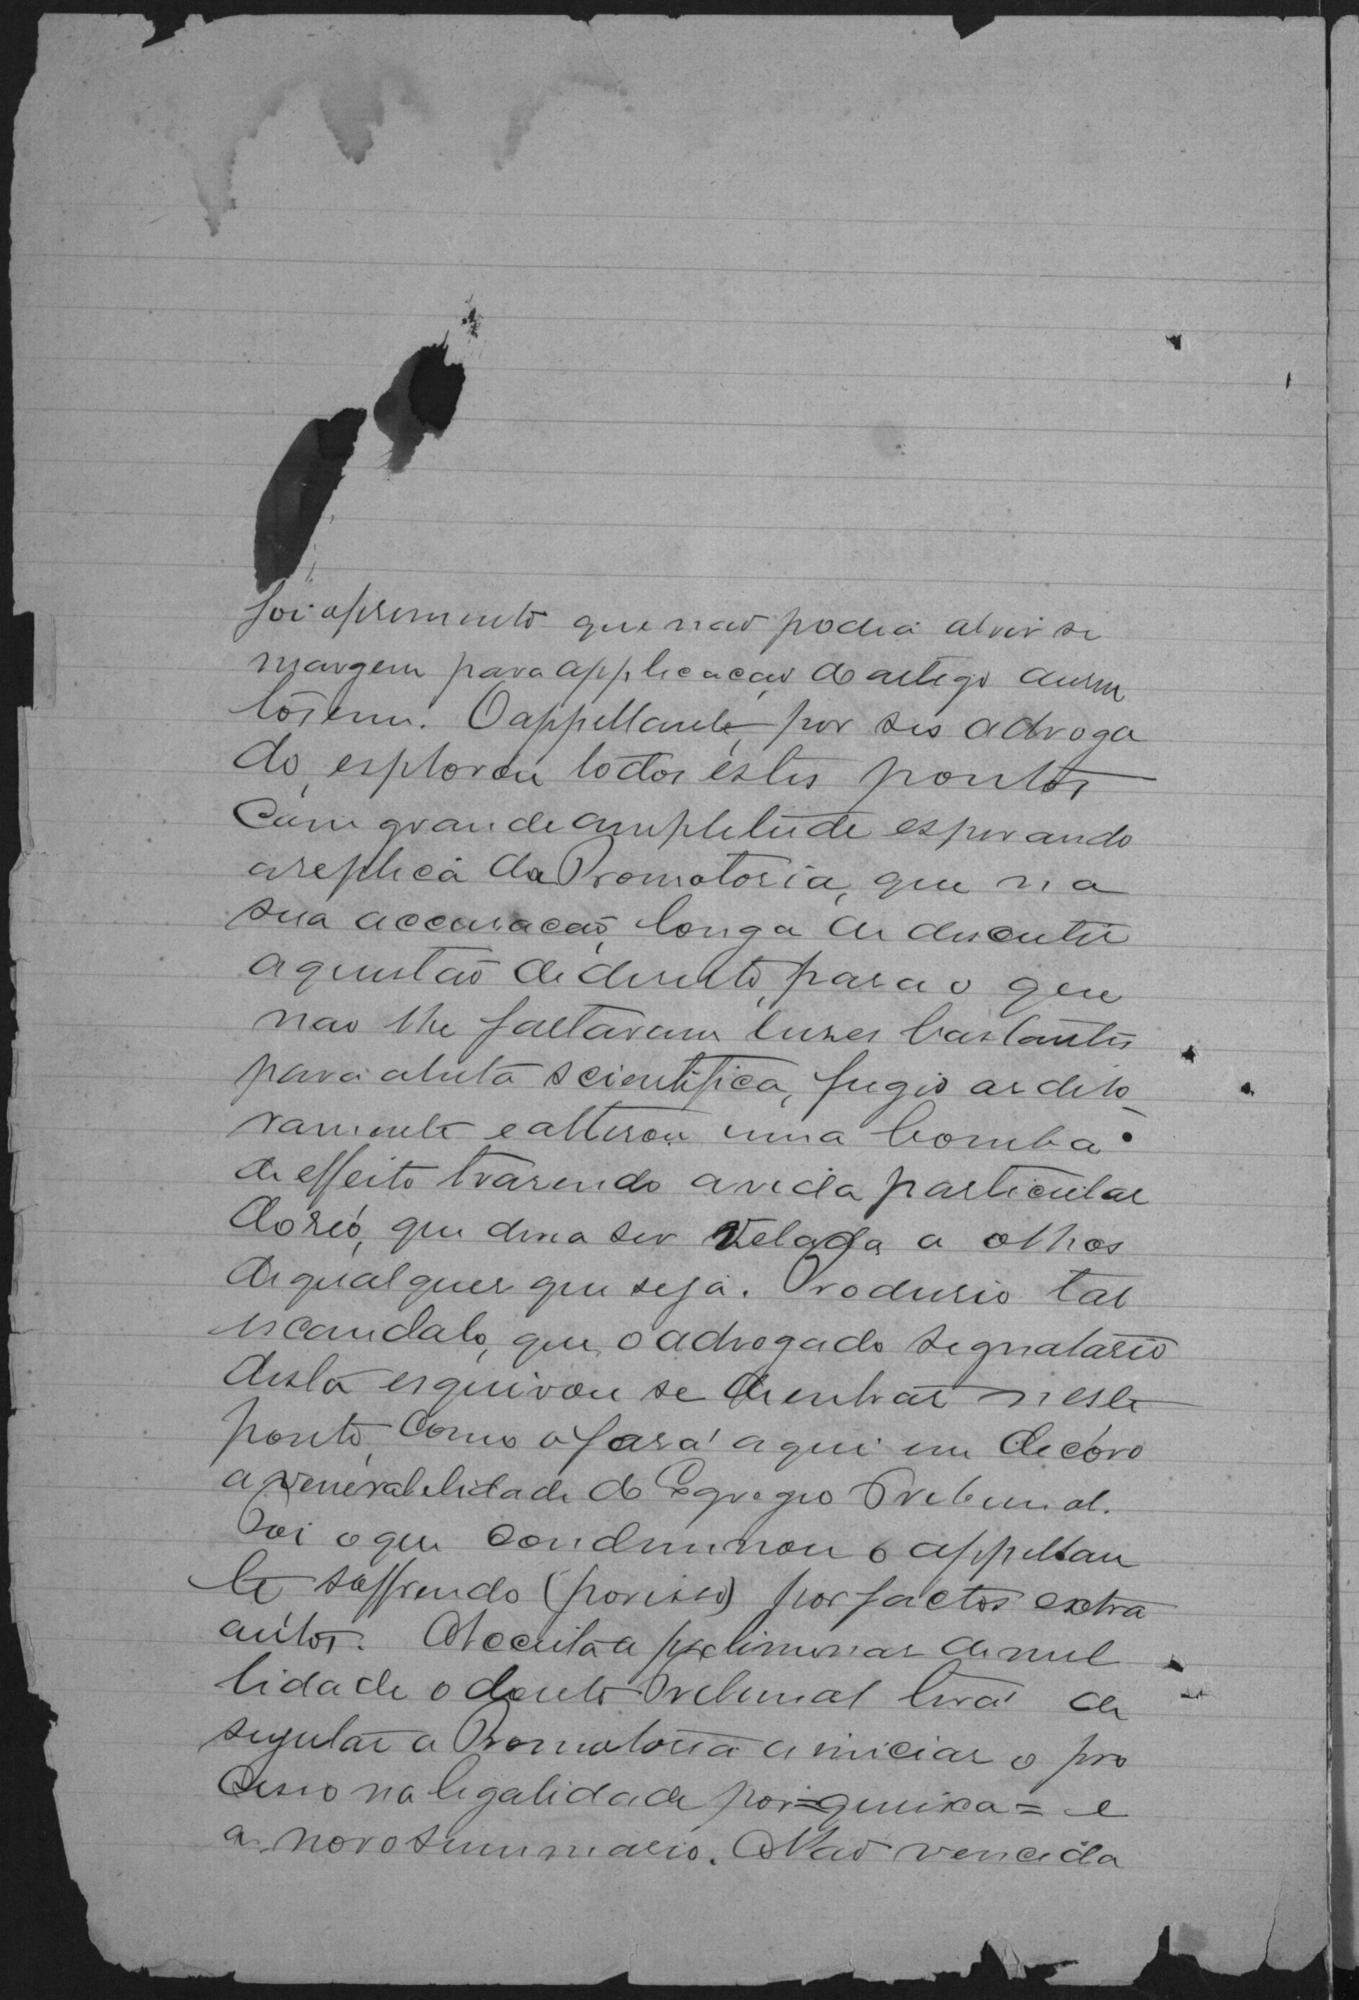 foi que não podia abrir se
margem para applicação do artigo
. O appellante, por seo advoga
do, explorou todos estes pontos
com grande amplitude esperando
a replica da Promotoria, que na
sua accusação, longa de discutir
a questão de direito, para o que
nao lhe faltaram luzes bastantes
para a luta scientifica, fugio ardilo
samente e atterou uma bomba
de effeito trasendo a vida particular
do réo, que devia ser velada a olhos
de qualquer que seja. Produsio tal
escandalo, que o advogado signatario
desta esquivou se de entrar neste
ponto, como o fará aqui em decóro
a venerabelidade do Egregio Tribunal.
Foi o que condemnou o appellan
te soffrendo (por isso) por factos extra
autos. Acceita a preliminar de nul
lidade o douto Tribunal terá de
sugeitar a Promotoria a iniciar o pro
cesso na legalidade por = queixa = e
a novo summario. Não vencida